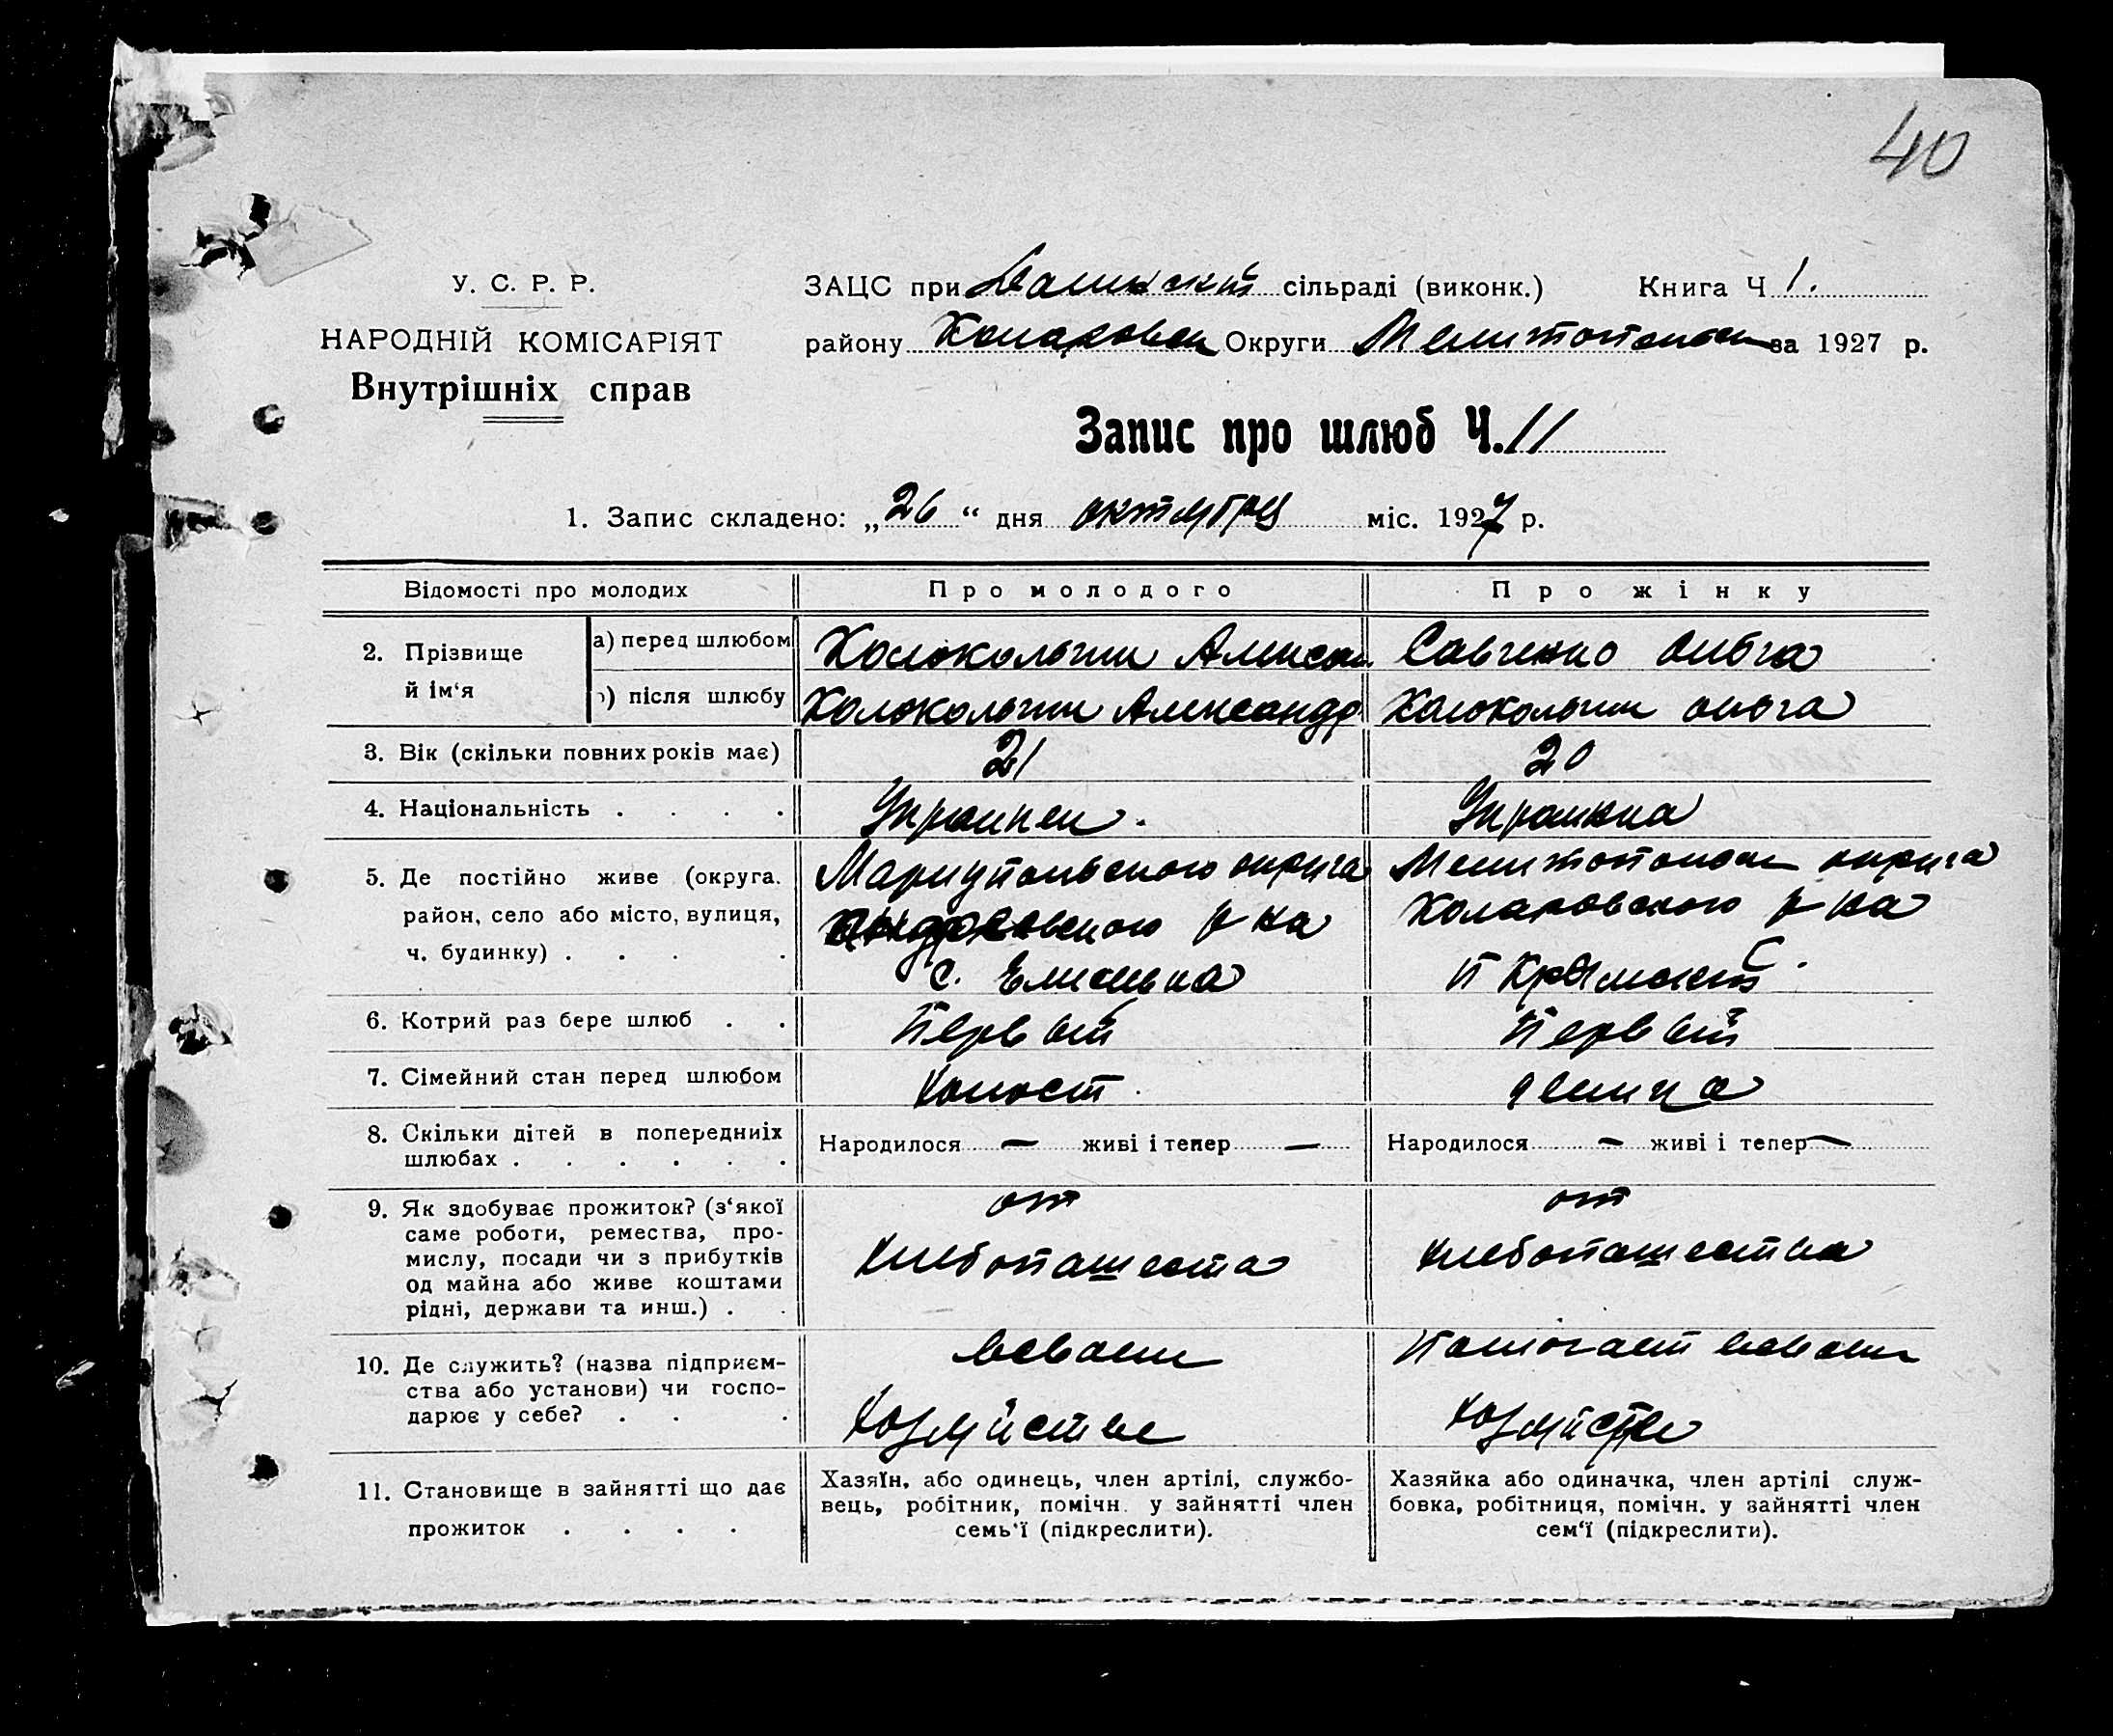 40
У. С. Р. Р.
НАРОДНІЙ КОМІСАРІЯТ
Внутрішніх справ
ЗАЦС при сільраді (виконк.) Книга Ч 1.
району Коларовск Округи Мелитопольск за 1927 р.
Запис про шлюб Ч. 11
1. Запис складено: „26“ дня октября міс. 1927 р.
Відомості про молодих Про молодого Про жінку
2. Прізвище й ім‘я
а) перед шлюбом Колокольчин Алексан Савченко Ольга
б) після шлюбу Колокольчин Александр Колокольчин Ольга
3. Вік (скільки повних років має) 21 20
4. Національність . . . . Украинец. Украинка
5. Де постійно живе (округа. район, село або місто, вулиця, ч. будинку) . . . .
Мариупольского округа
р на
с.
Мелитопольск округа
Коларовского р на
п
6. Котрий раз бере шлюб . . Первый Первый
7. Сімейний стан перед шлюбом Холост. девица
8. Скільки дітей в попередниіх шлюбах . . . . . . Народилося — живі і тепер — Народилося — живі і тепер —
9. Як здобуває прожиток? (з‘якої
саме роботи, ремества, про-
мислу, посади чи з прибутків
од майна або живе коштами
рідні, держави та инш.) . .
от
хлебопашеста
от
хлебопашества
10. Де служить? (назва підприєм-
ства або установи) чи госпо-
дарює у себе? . . .
всваем
хозяйстве
Помогает всваем
хозяйстве
11. Становище в зайнятті що дає
прожиток . . . .
Хазяїн, або одинець, член артілі, службо-
вець, робітник, помічн. у зайнятті член
семь‘ї (підкреслити).
Хазяйка або одиначка, член артілі служ-
бовка, робітниця, помічн. у зайнятті член
сем‘ї (підкреслити).